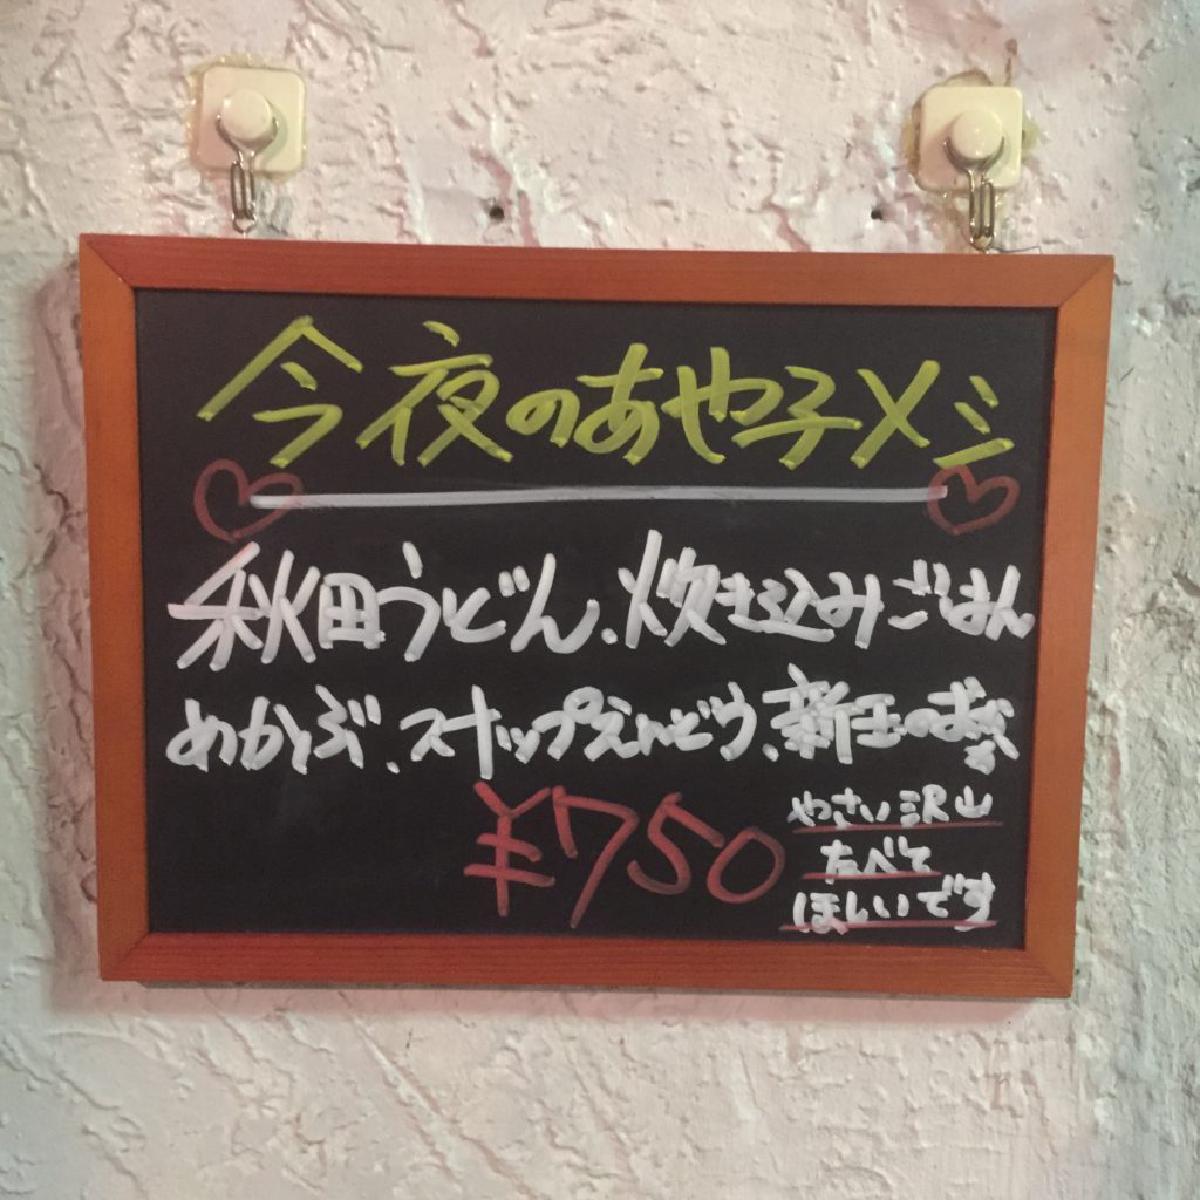 今夜のあや子メシ
秋田うどん、炊き込みごはん
めかぶ、スナップえんどう、新玉のおひたし
¥750
やさい沢山
たべて
ほしいです